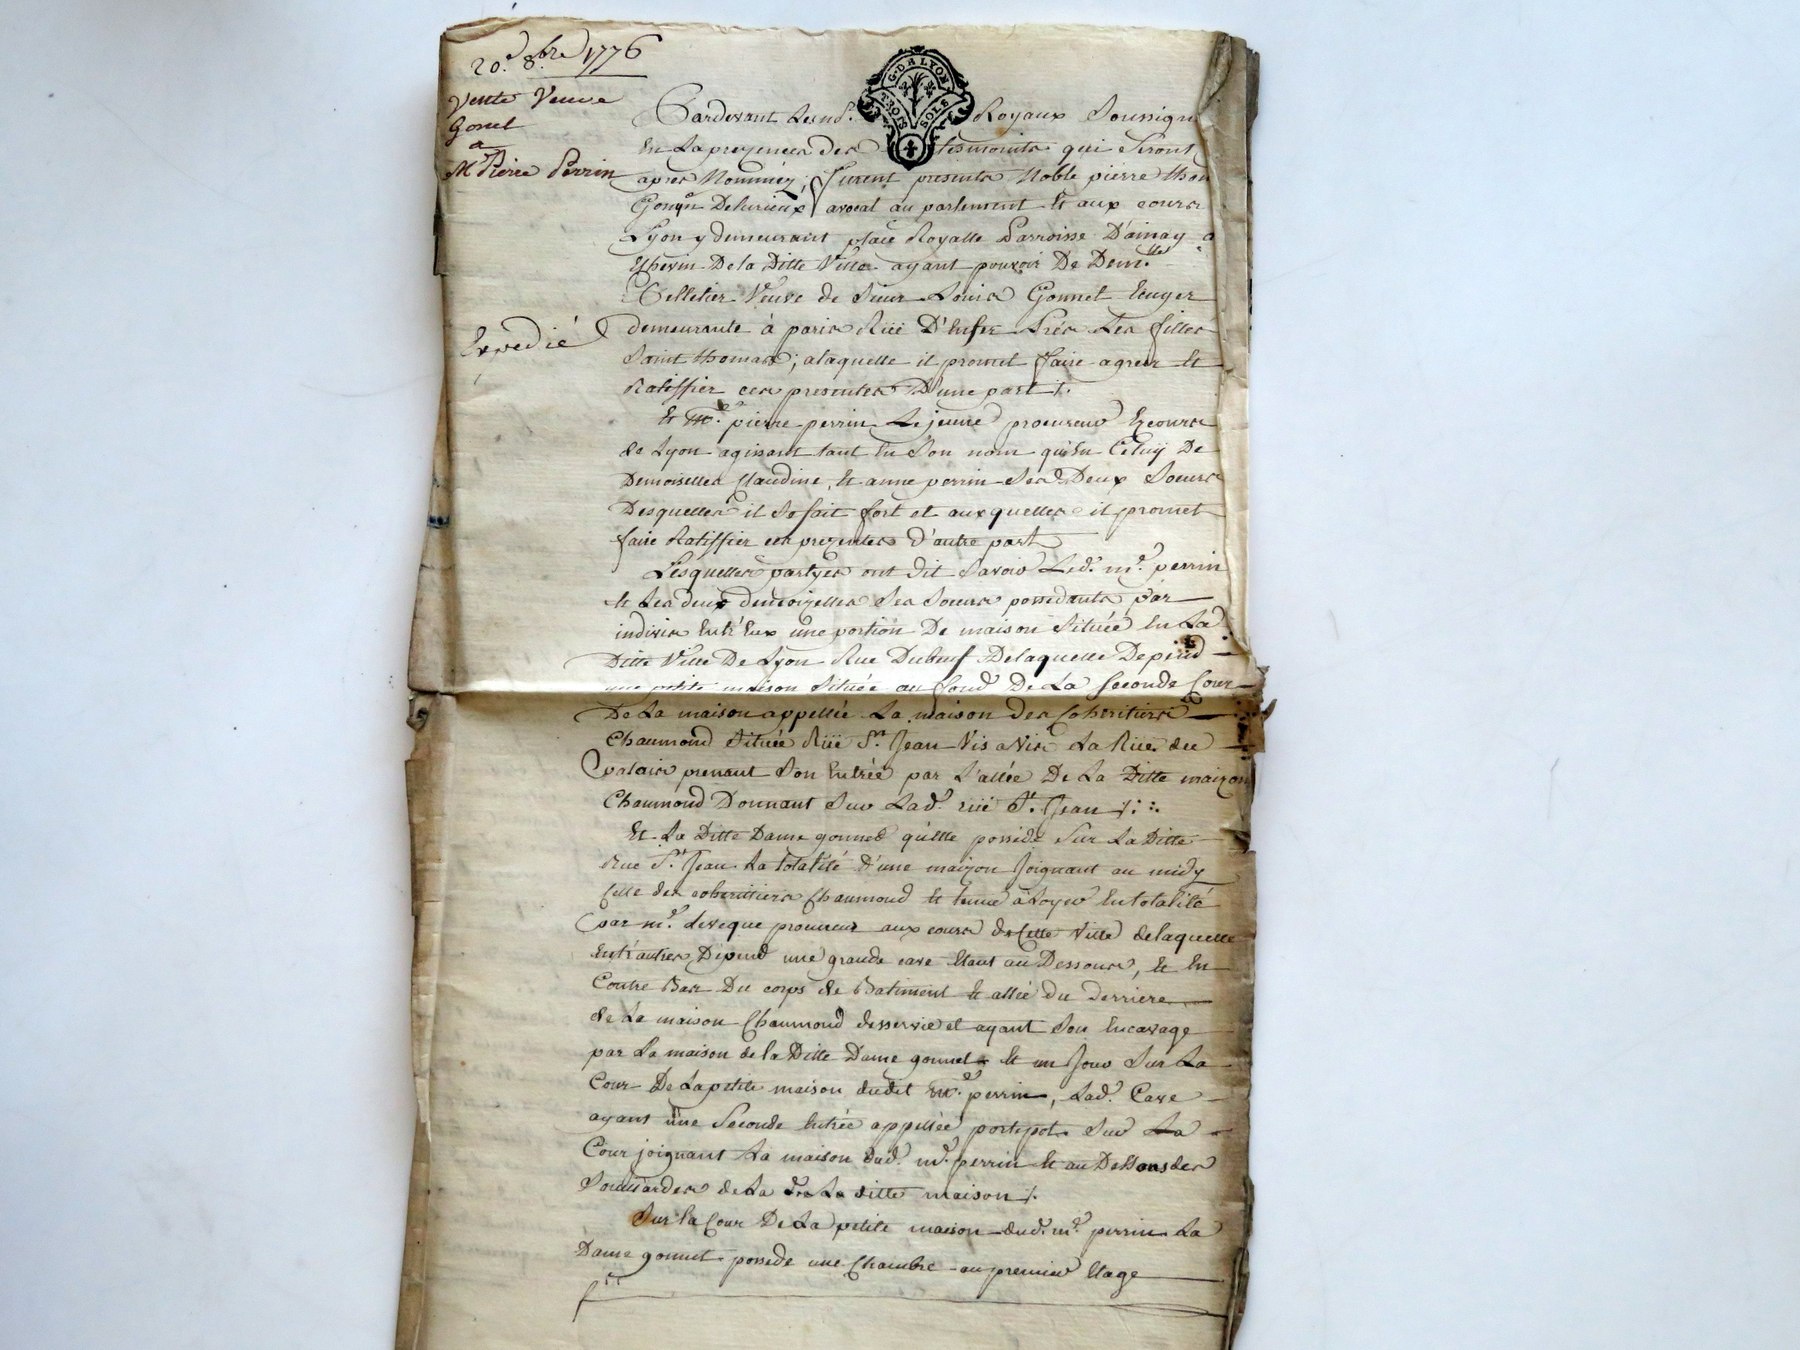 20e 8bre 1776
Vente Veuve
Gonet
a
Me Pierre Perrin
Expedié
G. DE LYON
TROIS SOLS
Pardevant Les no. Royaux Soussign
En La presence des tesmoints qui Seront
apres Nommez; furent presents Noble pierre thom
Gonyn Delurieux avocat au parlement Et aux cours
Lyon y demeurant place Royalle Parroisse D'ainay
Echevin De la Ditte Ville ayant pouvoir De Demlle
Pelletier Veuve de Sieur Louis Gonnet Ecuyer
demeurante à paris Rüe D'Enfer Près Les filles
Saint thomas; alaquelle il promet faire agreer Et
Ratiffier ces presentes D'une part /.
Et Me. pierre perrin Lejeune procureur Ez cours
de Lyon agissant tant En Son nom qu'En Celuy De
Demoiselles Claudine, Et anne perrin Ses Deux Soeurs
Desquelles il Se fait fort et auxquelles il promet
faire Ratiffier ces prezentes D'autre part
Lesquelles partyes ont dit Savoir Led. me. perrin
Et Les deux demoizelles Ses Soeurs possedants par
indivis Entr'Eux une portion De maison Située En La
Ditte Ville De Lyon Rue Duboeuf Delaquelle Depend
une petite maison Située au fond De La Seconde Cour
De La maison appellée La maison des Coheritiers
Chaumond Située Rüe St. Jean Vis a Vis La Rüe du
palais prenant Son Entrée par L'allée De La Ditte maizon
Chaumond Donnant Sur Lad. rüe St. Jean /.
Et La Ditte Dame gonnet qu'Elle possede Sur La Ditte
Rue St. Jean La totalité D'une maizon Joignant au midy
Celle des coheritiers Chaumond Et tenue à Loyer En totalité
par me. Leveque procureur aux cours de Cette Ville delaquelle
Entr'autres Depend une grande cave Etant au Dessous, Et En
Contre Bas Du corps de Batiment Et allée du Derriere
de La maison Chaumond desservie et ayant Son Encavage
par La maison de la Ditte Dame gonnet Et un Jour Sur La
Cour De La petite maison dudit me. perrin, Lad. Cave
ayant une Seconde Entrée appellée portepot Sur La
Cour joignant La maison dud. me. perrin Et au Dessous des
de La La ditte maison /.
Sur la Cour De La petite maison dud. me. perrin La
Dame gonnet possede une Chambre au premier Etage